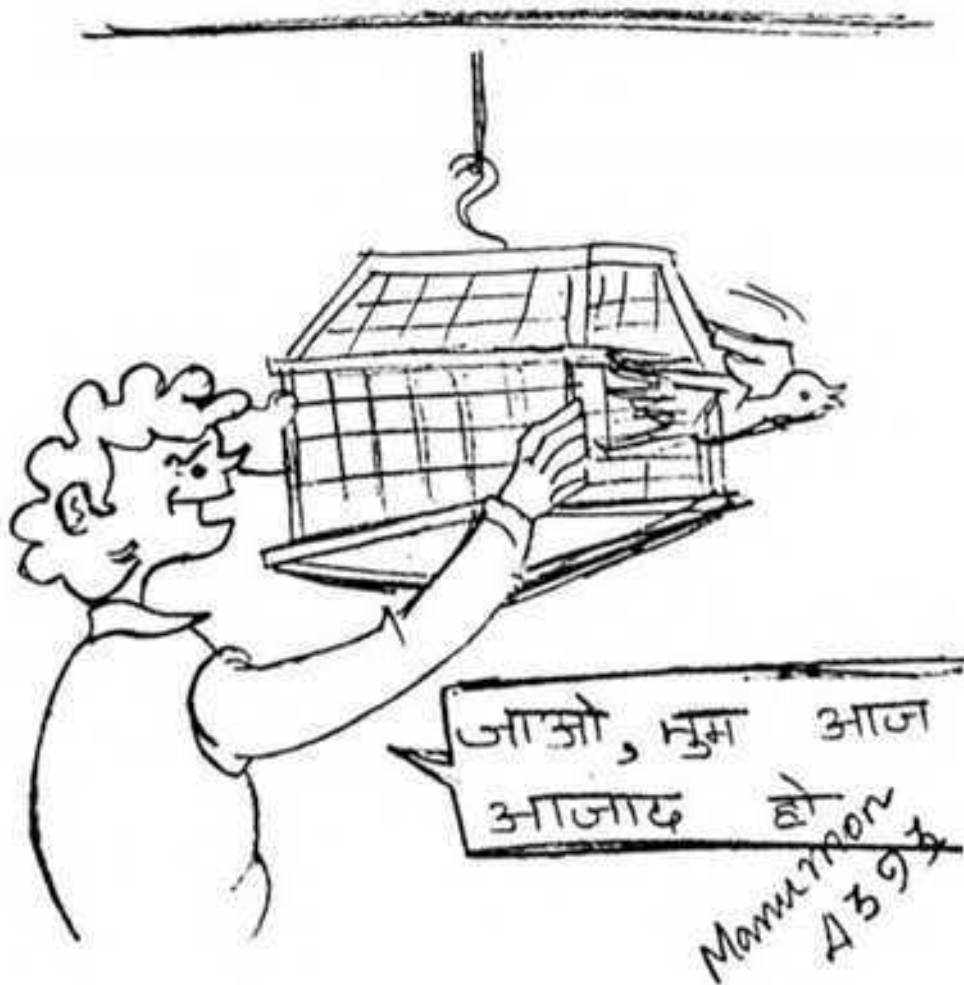 जाओ, तुम आज
आजाद हो
Manumon